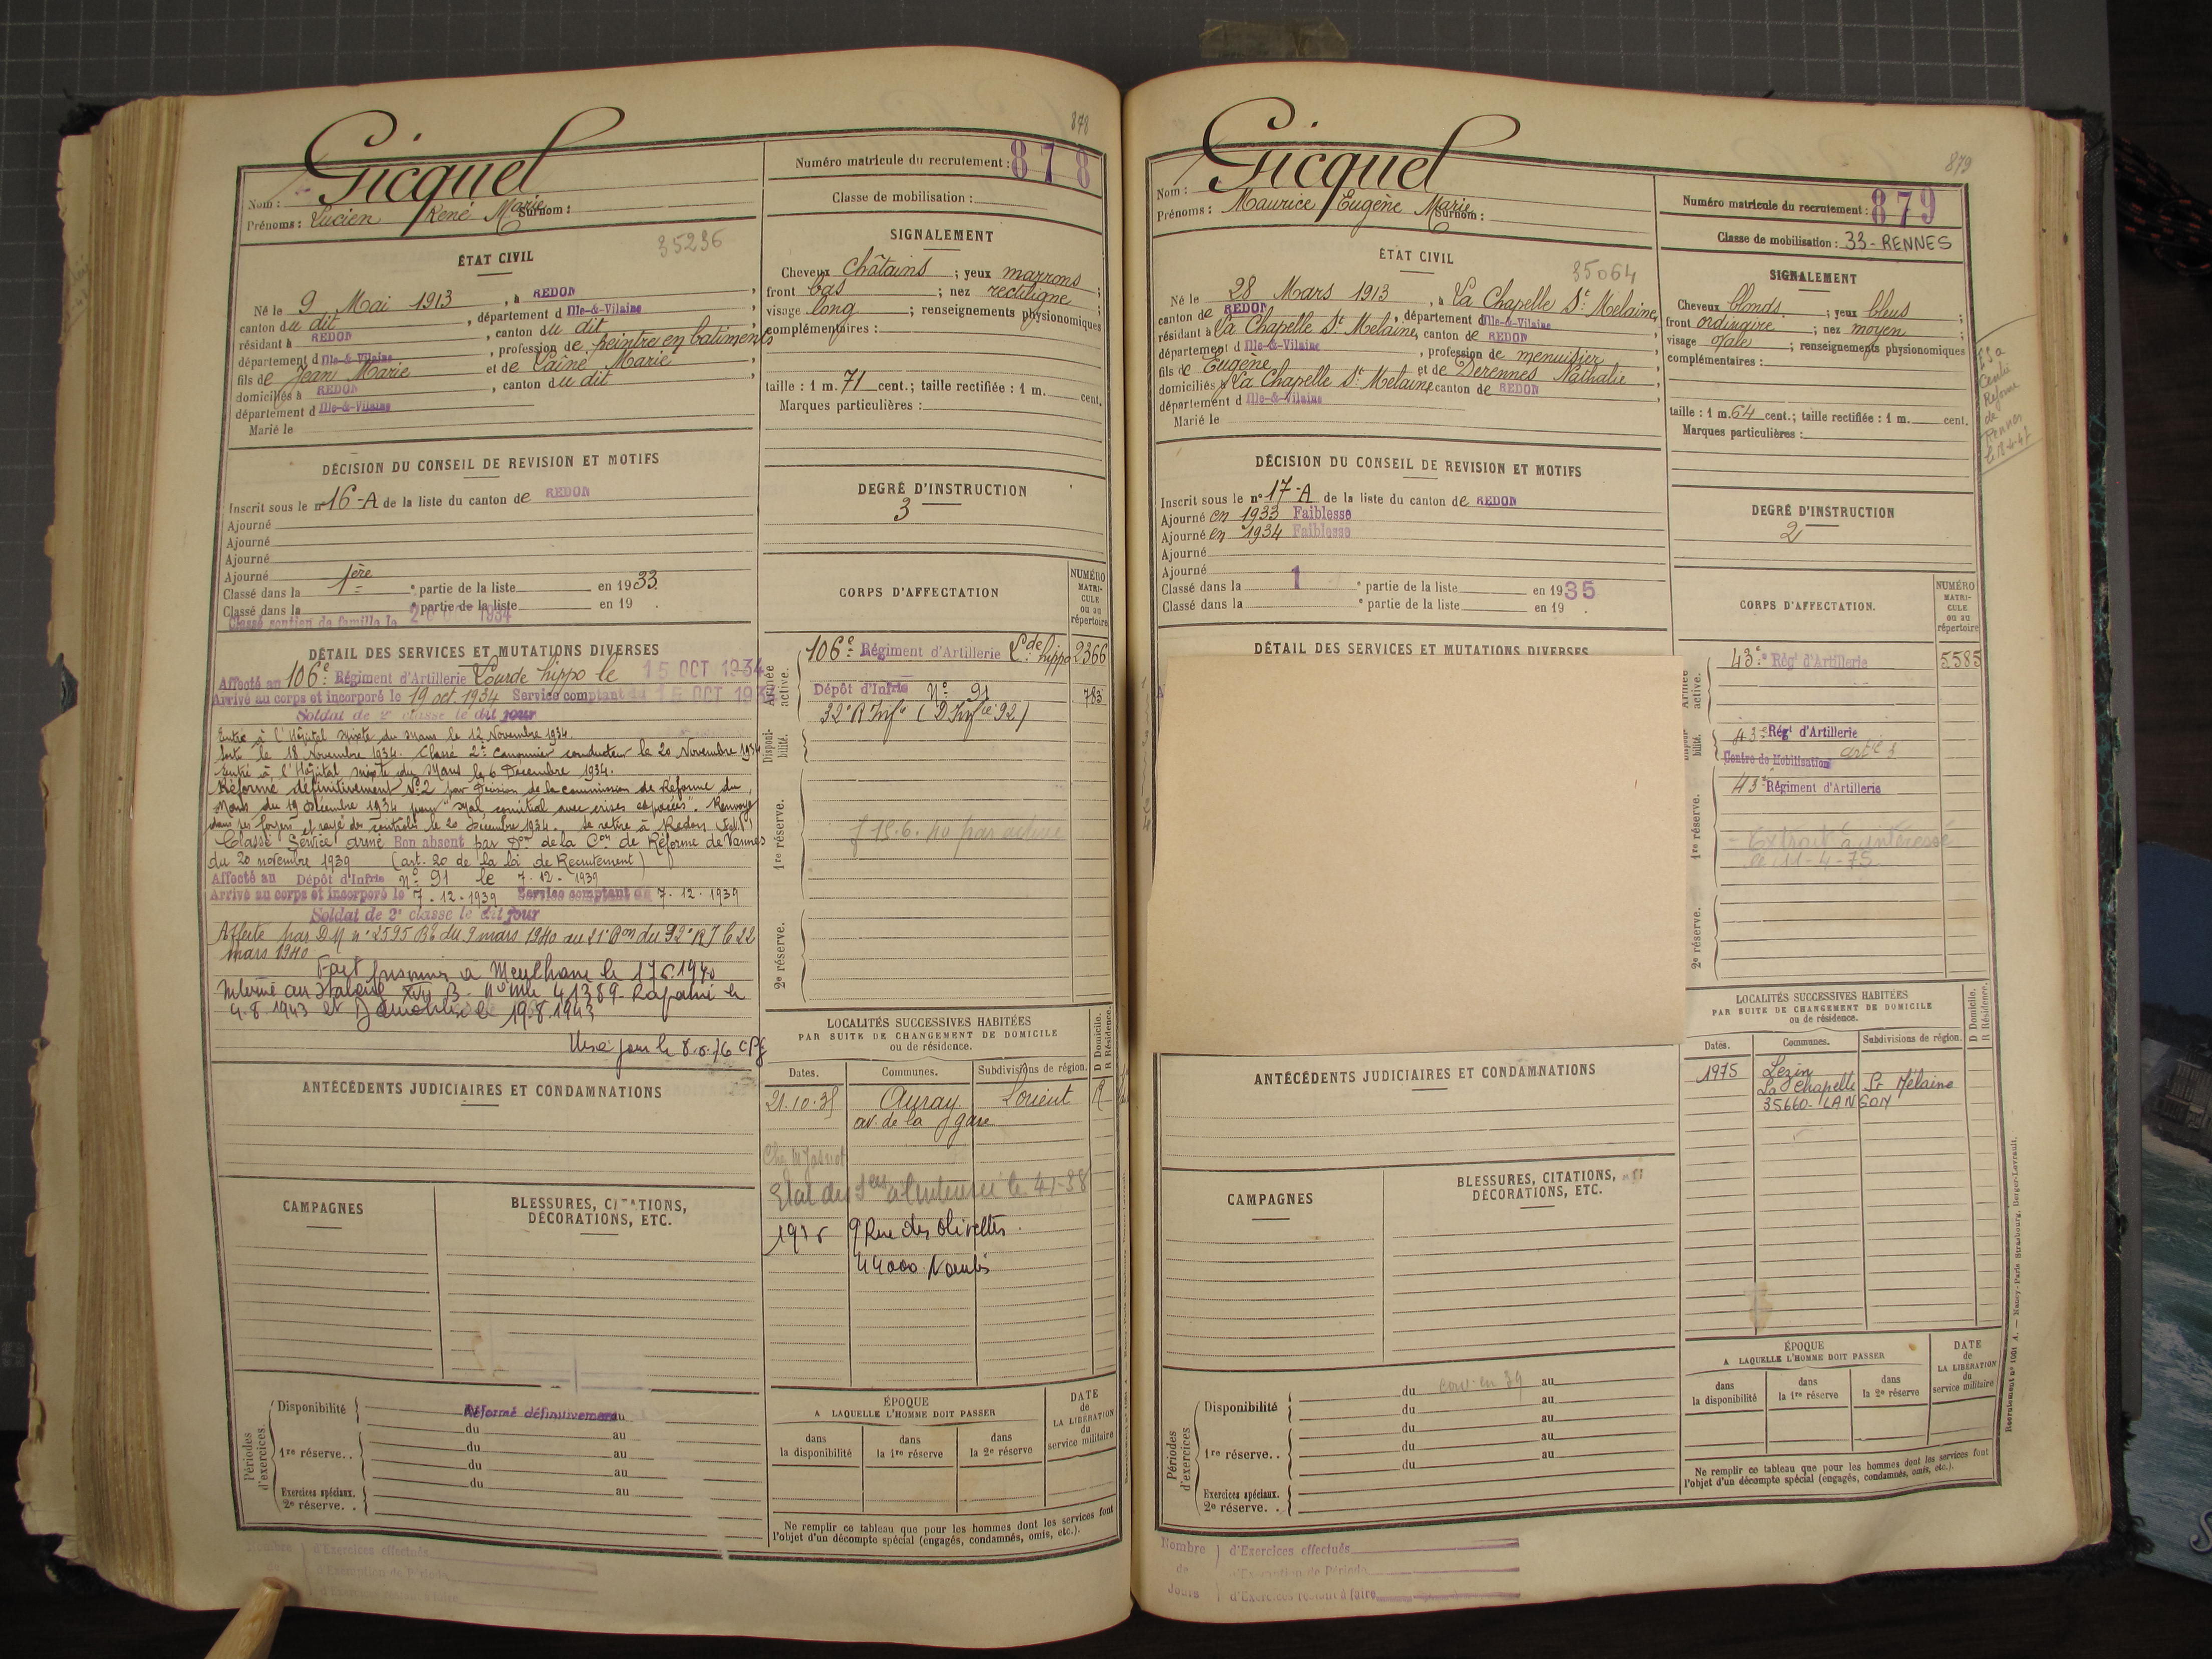 878
Gicquel
Nom :
Prénoms : Lucien René Marie Surnom :
35236
ÉTAT CIVIL
Né le 9 Mai 1913, à REDON,
canton du dit, département d Ille-&-Vilaine,
résidant à REDON, canton du dit,
département d Ille-&-Vilaine, profession de peintre en batiments
fils de Jean Marie et de Lainé Marie,
domiciliés à REDON, canton du dit,
département d Ille-&-Vilaine
Marié le
DÉCISION DU CONSEIL DE REVISION ET MOTIFS
Inscrit sous le nº 16-A de la liste du canton de REDON
Ajourné
Ajourné
Ajourné
Ajourné
Classé dans la 1ère partie de la liste en 1933.
Classé dans la e partie de la liste en 19 .
Classé soutien de famille le 1934
DÉTAIL DES SERVICES ET MUTATIONS DIVERSES
Affecté au 106e Régiment d'Artillerie Lourde hippo le 15 OCT 1934
Arrivé au corps et incorporé le 19 oct. 1934 Service comptant du 15 OCT 1934
Soldat de 2e classe le dit jour
Entré à l'Hôpital mixte du Mans le 12 Novembre 1934.
Sorti le 18 Novembre 1934. Classé 2e canonnier conducteur le 20 Novembre 1934
Entré à l'Hôpital mixte du Mans le 6 Decembre 1934.
Réformé définitivement Nº2 par Décision de la commission de Réforme du
Mans du 19 décembre 1934 pour "Mal comitial avec crises espacées". Renvoyé
dans ses foyers et rayé des contrôles le 20 Decembre 1934. Se retire à Redon (I&V)
Classé Service armé Bon absent par Don de la Con de Réforme de Vannes
du 20 novembre 1939 (art. 20 de la loi de Recrutement)
Affecté au Dépôt d'Infrie Nº 91 le 7.12.1939
Arrivé au corps et incorporé le 7.12.1939 Service comptant du 7.12.1939
Soldat de 2e classe le dit jour
Affecté par DM nº 2595 du 9 mars 1940 au 21e Bon du 92e RI le 22
mars 1940
Fait prisonnier à le 17 6 1940
Interné au Stalag XVII B. Nº Mle 41389 - Rapatrié le
4.8.1943 et Démobilisé le 19.8.1943
Mis à jour le 8.6.76
ANTÉCÉDENTS JUDICIAIRES ET CONDAMNATIONS
CAMPAGNES
BLESSURES, CITATIONS,
DÉCORATIONS, ETC.
Périodes d'exercices
Disponibilité Réformé définitivement au
du au
1re réserve.. du au
du au
Exercices spéciaux.
2e réserve. . du au
Nombre de
d'Exercices effectués
d'Exemption de Période
d'Exercices restant à faire
Numéro matricule du recrutement : 878
Classe de mobilisation :
SIGNALEMENT
Cheveux châtains ; yeux marrons ;
front bas ; nez rectiligne ;
visage long ; renseignements physionomiques
complémentaires :
taille : 1 m. 71 cent.; taille rectifiée : 1 m. cent.
Marques particulières :
DEGRÉ D'INSTRUCTION
3
CORPS D'AFFECTATION
NUMÉRO
MATRI-
CULE
ou au
répertoire
Armée active.
106e Régiment d'Artillerie Lde hippo 2366
Dépôt d'Infrie Nº 91 783
32e R Infie (D Infie 92)
Disponibilité.
1re réserve.
2e réserve.
LOCALITÉS SUCCESSIVES HABITÉES
PAR SUITE DE CHANGEMENT DE DOMICILE
ou de résidence.
D Domicile.
R Résidence.
Dates.
Communes.
Subdivisions de région.
21.10.35 Auray Lorient R
av. de la gare
Etat des Sces à l'intéressé le 4-1-38
1976 9 Rue des Olivettes.
44000 Nantes
ÉPOQUE
A LAQUELLE L'HOMME DOIT PASSER
DATE
de
LA LIBÉRATION
du
service militaire
dans
la disponibilité
dans
la 1re réserve
dans
la 2e réserve
Ne remplir ce tableau que pour les hommes dont les services font
l'objet d'un décompte spécial (engagés, condamnés, omis, etc.).
879
Gicquel
Nom :
Prénoms : Maurice Eugène Marie Surnom :
35064
ÉTAT CIVIL
Né le 28 Mars 1913, à La Chapelle St Melaine,
canton de REDON, département d Ille-&-Vilaine
résidant à La Chapelle St Melaine, canton de REDON
département d Ille-&-Vilaine, profession de menuisier,
fils de Eugène et de Derennes Nathalie,
domiciliés à La Chapelle St Melaine, canton de REDON,
département d Ille-&-Vilaine
Marié le
DÉCISION DU CONSEIL DE REVISION ET MOTIFS
Inscrit sous le nº 17-A de la liste du canton de REDON
Ajourné en 1933 Faiblesse
Ajourné en 1934 Faiblesse
Ajourné
Ajourné
Classé dans la 1 e partie de la liste en 1935
Classé dans la e partie de la liste en 19 .
DÉTAIL DES SERVICES ET MUTATIONS DIVERSES
ANTÉCÉDENTS JUDICIAIRES ET CONDAMNATIONS
CAMPAGNES
BLESSURES, CITATIONS,
DÉCORATIONS, ETC.
Périodes d'exercices
Disponibilité du conv. en 39 au
du au
du au
1re réserve.. du au
du au
Exercices spéciaux.
2e réserve. .
Nombre de Jours
d'Exercices effectués
d'Exemption de Période
d'Exercices restant à faire
Numéro matricule du recrutement : 879
Classe de mobilisation : 33 - RENNES
SIGNALEMENT
Cheveux blonds ; yeux bleus
front ordinaire ; nez moyen
visage ovale ; renseignements physionomiques
complémentaires :
taille : 1 m. 64 cent.; taille rectifiée : 1 m. cent.
Marques particulières :
Centre
Reforme
de
Rennes
DEGRÉ D'INSTRUCTION
2
CORPS D'AFFECTATION.
NUMÉRO
MATRI-
CULE
ou au
répertoire
Armée active.
43e Régt d'Artillerie 5585
43e Régt d'Artillerie
Centre de Mobilisation artie
43e Régiment d'Artillerie
1re réserve.
- Extrait à intéressé
le 11-4-75.
2e réserve.
LOCALITÉS SUCCESSIVES HABITÉES
PAR SUITE DE CHANGEMENT DE DOMICILE
ou de résidence.
D Domicile.
R Résidence.
Dates.
Communes.
Subdivisions de région.
1975 Lezin
La Chapelle St Mélaine
35660 - LANGON
ÉPOQUE
A LAQUELLE L'HOMME DOIT PASSER
DATE
de
LA LIBÉRATION
du
service militaire
dans
la disponibilité
dans
la 1re réserve
dans
la 2e réserve
Ne remplir ce tableau que pour les hommes dont les services font
l'objet d'un décompte spécial (engagés, condamnés, omis, etc.).
Recrutement nº 1001 A. — Nancy-Paris-Strasbourg, Berger-Levrault.